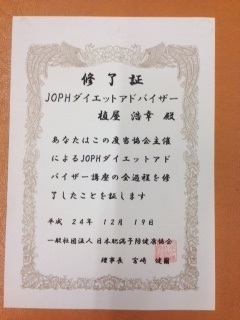 修了証
JOPHダイエットアドバイザー
植屋 浩幸 殿
あなたはこの度当協会主催
によるJOPHダイエットアド
バイザー講座の全過程を修
了したことを証します
平成 24年 12月 19日
一般社団法人 日本肥満予防健康協会
理事長 宮崎 健爾